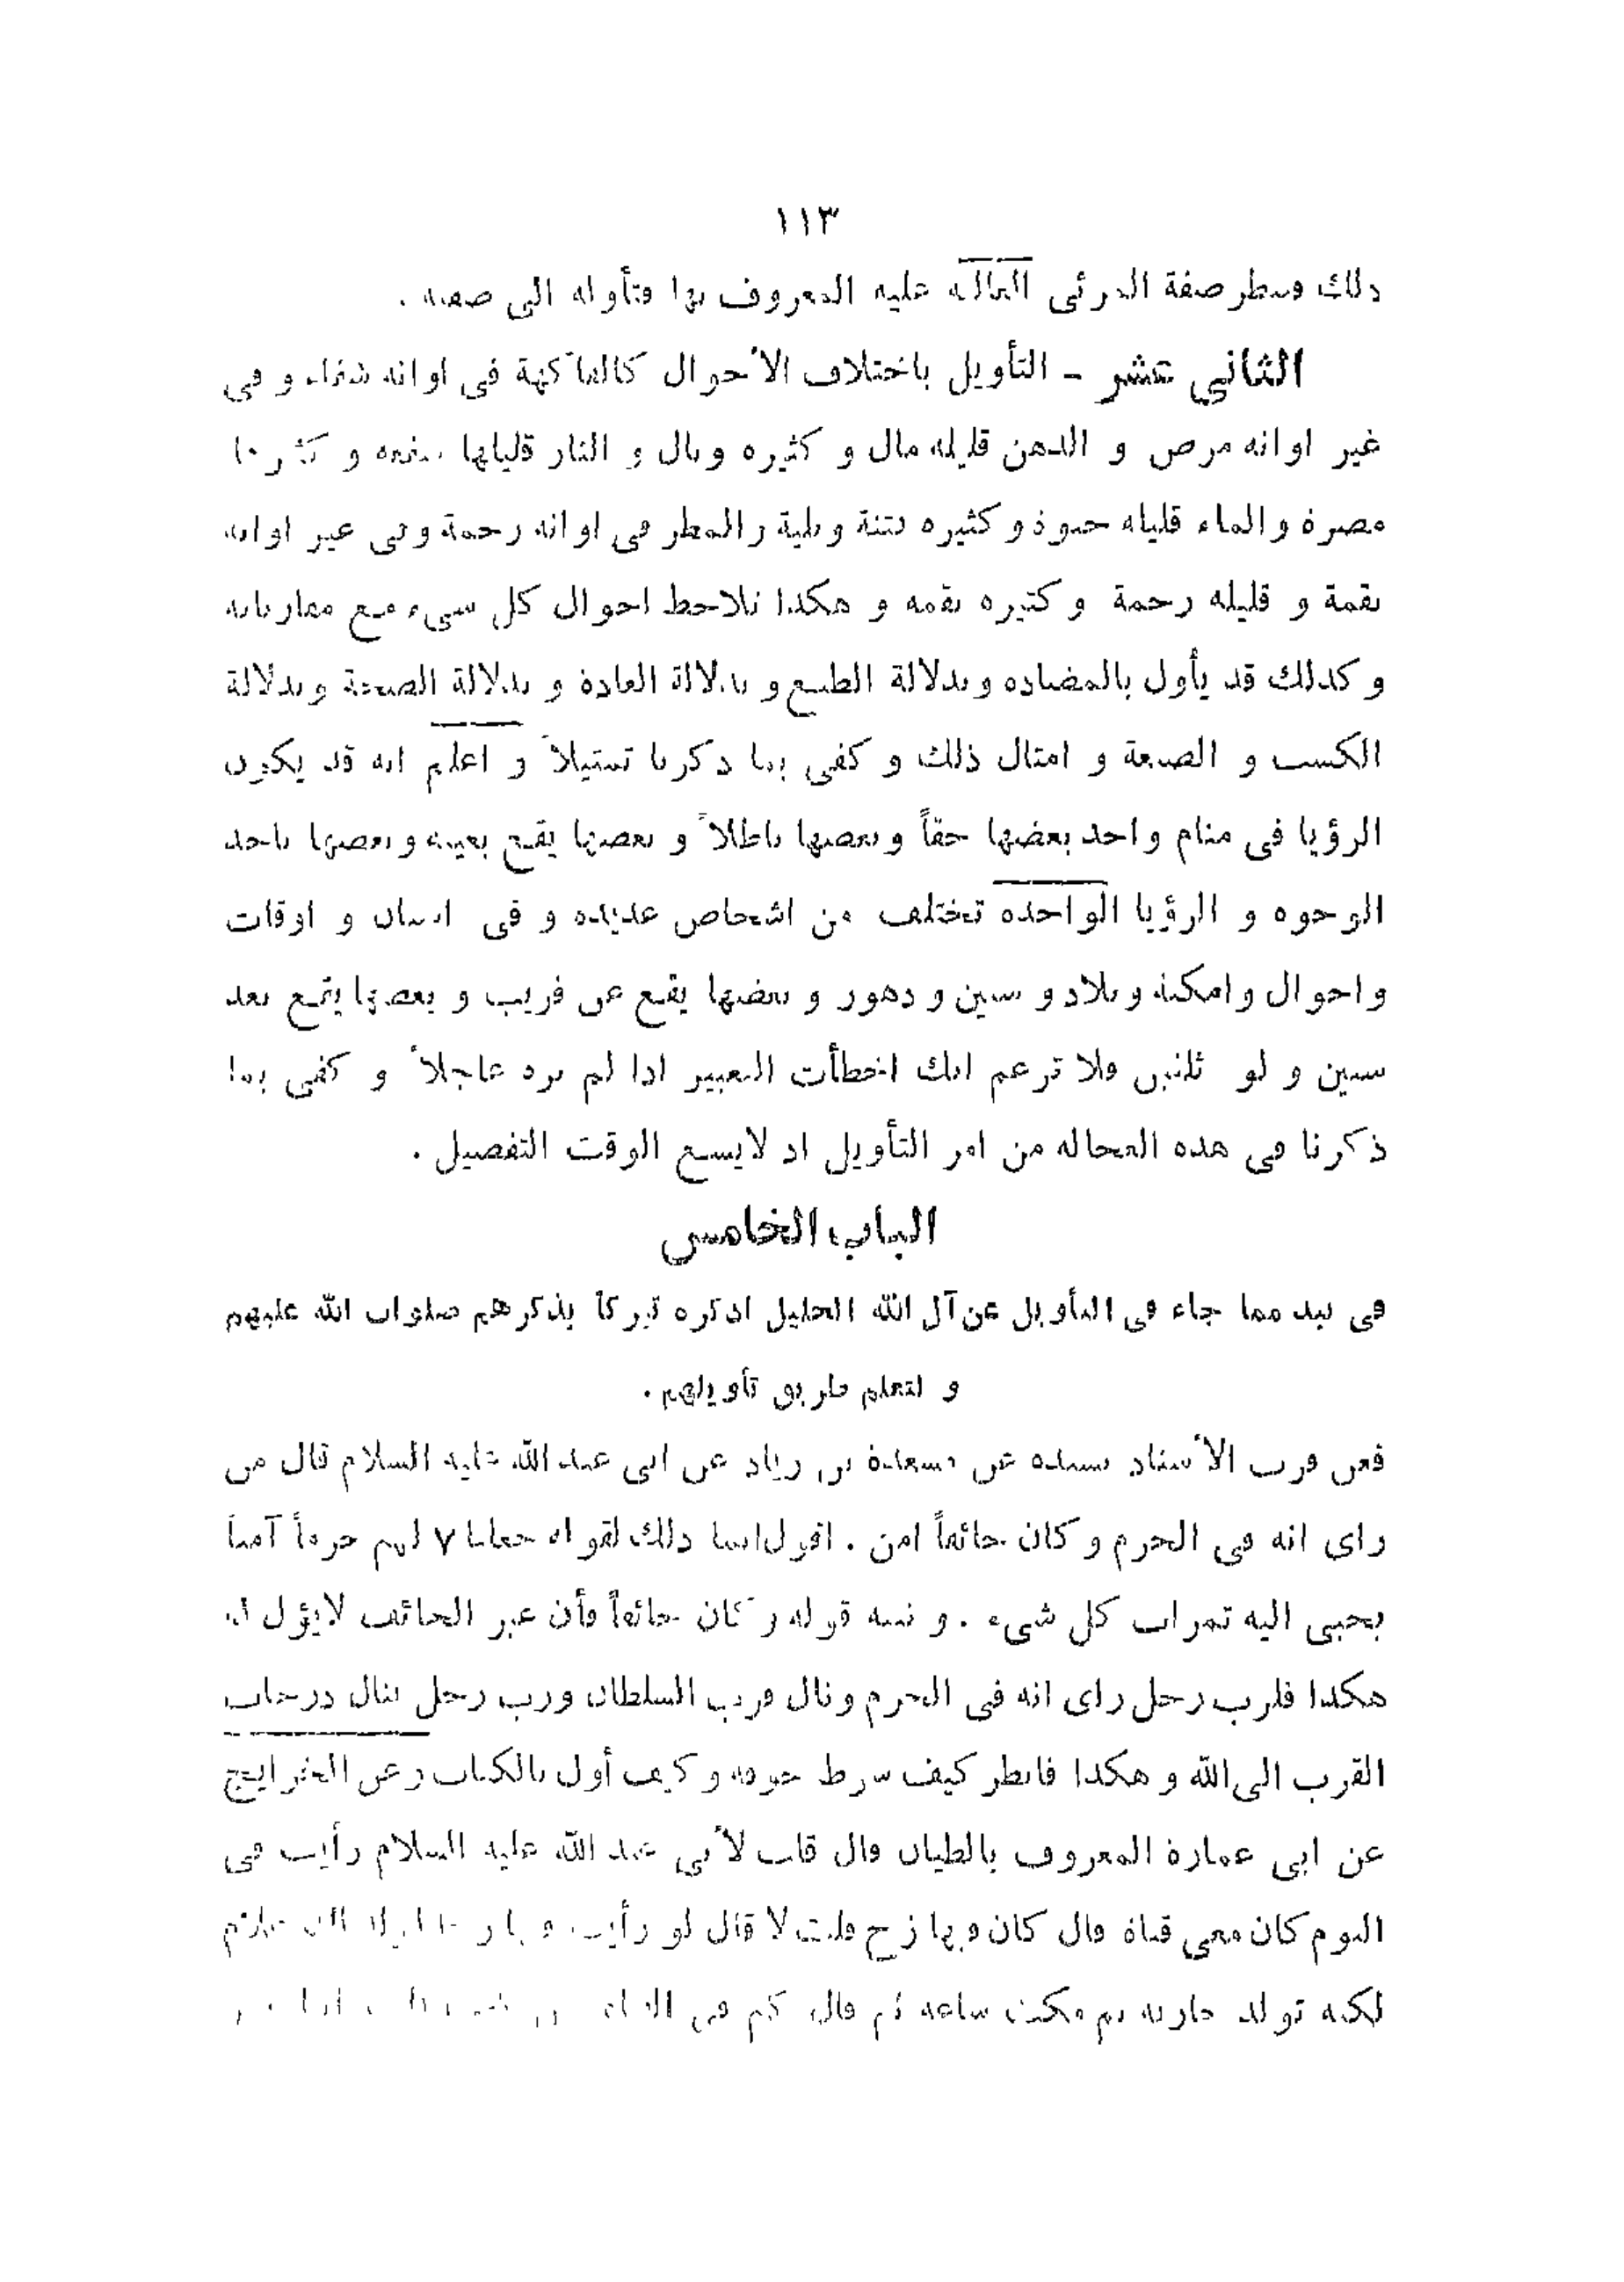 ١١٣
ذلك فينظر صفة المرئى الغالبة عليه المعروف بها فتأوله الى صفته .
الثانى عشر ـ التأويل باختلاف الأحوال كالفاكهة فى اوانه شفاء و فى
غير اوانه مرض و الدهن قليله مال و كثيره وبال و النار قليلها منفعة و كثيرها
مضرة و الماء قليله حيوة و كثيره فتنة و بلية و المطر فى اوانه رحمة و فى غير اوانه
نقمة و قليله رحمة و كثيره نقمة و هكذا تلاحظ احوال كل شىء مع مقارناته
و كذلك قد يأول بالمضاده و بدلالة الطبع و بدلالة العادة و بدلالة الصحة و بدلالة
الكسب و الصنعة و امثال ذلك و كفى بما ذكرنا تمثيلاً و اعلم انه قد يكون
الرؤيا فى منام واحد بعضها حقاً و بعضها باطلاً و بعضها يقع بعينه و بعضها باحد
الوجوه و الرؤيا الواحده تختلف من اشخاص عديده و فى و اوقات
و احوال و امكنة و بلاد و سنين و دهور و بعضها يقع عن قريب و بعضها يقع بعد
سنين و لو ثلثين فلا تزعم انك اخطأت التعبير اذا لم تره عاجلاً و كفى بما
ذكرنا فى هذه العجاله من امر التأويل اذ لايسع الوقت التفصيل .
الباب الخامس
فى نبذ مما جاء فى التأويل عن آل الله الجليل اذكره تبركاً بذكرهم صلوات الله عليهم
و لتعلم طريق تأويلهم .
فعن قرب الأسناد بسنده عن مسعدة بن زياد عن ابى عبد الله عليه السلام قال من
راى انه فى الحرم و كان خائفاً امن . اقول انما ذلك لقوله جعلنا ٧ لهم حرماً آمناً
يجبى اليه ثمرات كل شىء . و نبه قوله و كان خائفاً فأن غير الخائف لايؤل له
هكذا فلرب رجل راى انه فى الحرم و نال قرب السلطان و رب رجل ينال درجات
القرب الى الله و هكذا فانظر كيف شرط خوفه و كيف أول بالكتاب و عن الخرايج
عن ابى عمارة المعروف بالطيان قال قلت لأبى عبد الله عليه السلام رأيت فى
النوم كان معى قناة قال كان فيها زج قلت لا قال لو رأيت فيها زجا لولد لك غلام
لكنه تولد جارية ثم مكث ساعة ثم قال كم فى القناة